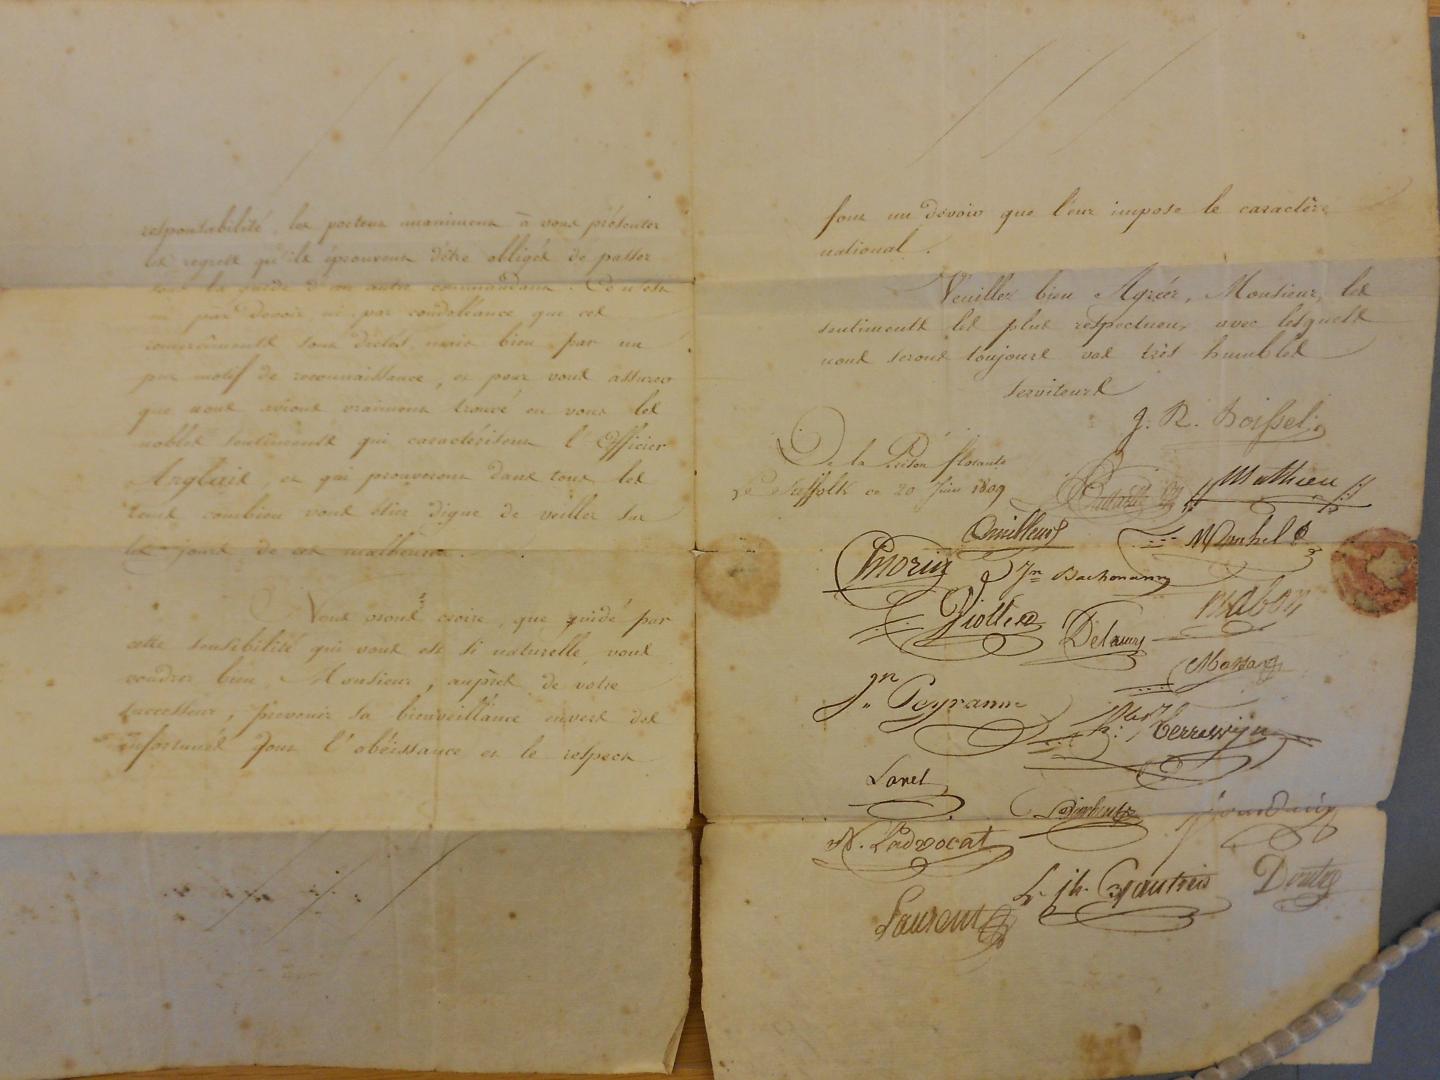 responsabilité, les porteur unanimeux à vous présenter
les regrets qu'ils éprouvent d'être obligés de passer
sous la guide d'un autre commandant. Ce n'est
ni par devoir ni par condoléance que ces
sont dictés, mais bien par un
pur motif de reconnaissance, et pour vous assurer
que nous avions vraiment trouvé en vous les
nobles sentiments qui caractérisent l'Officier
Anglais, et qui prouveront dans tous les
tems combien vous êtiez digne de veiller sur
les jours de ces malheureux.
Nous osons croire, que guidé par
cette sensibilité qui vous est si naturelle, vous
voudrez bien, Monsieur, auprès de votre
successeur, prevenir sa bienveillance envers des
infortunés dont l'obéissance et le respect
sont un devoir que l'eur impose le caractère
national.
Veuillez bien Agréer, Monsieur, les
sentiments les plus respectueux avec lesquels
nous serons toujours vos très humbles
serviteurs
J. R. Boissel.
De la Prison flotante
Le Suffolk ce 20 Juin 1809
Mathieu
Morin
Jn Bachmann
Viollier
Delaury
Mabon
Massara
Jn Peyranne
Lanet
N. Ladvocat
Jourdain
Laurent
Gautrois
Doutre